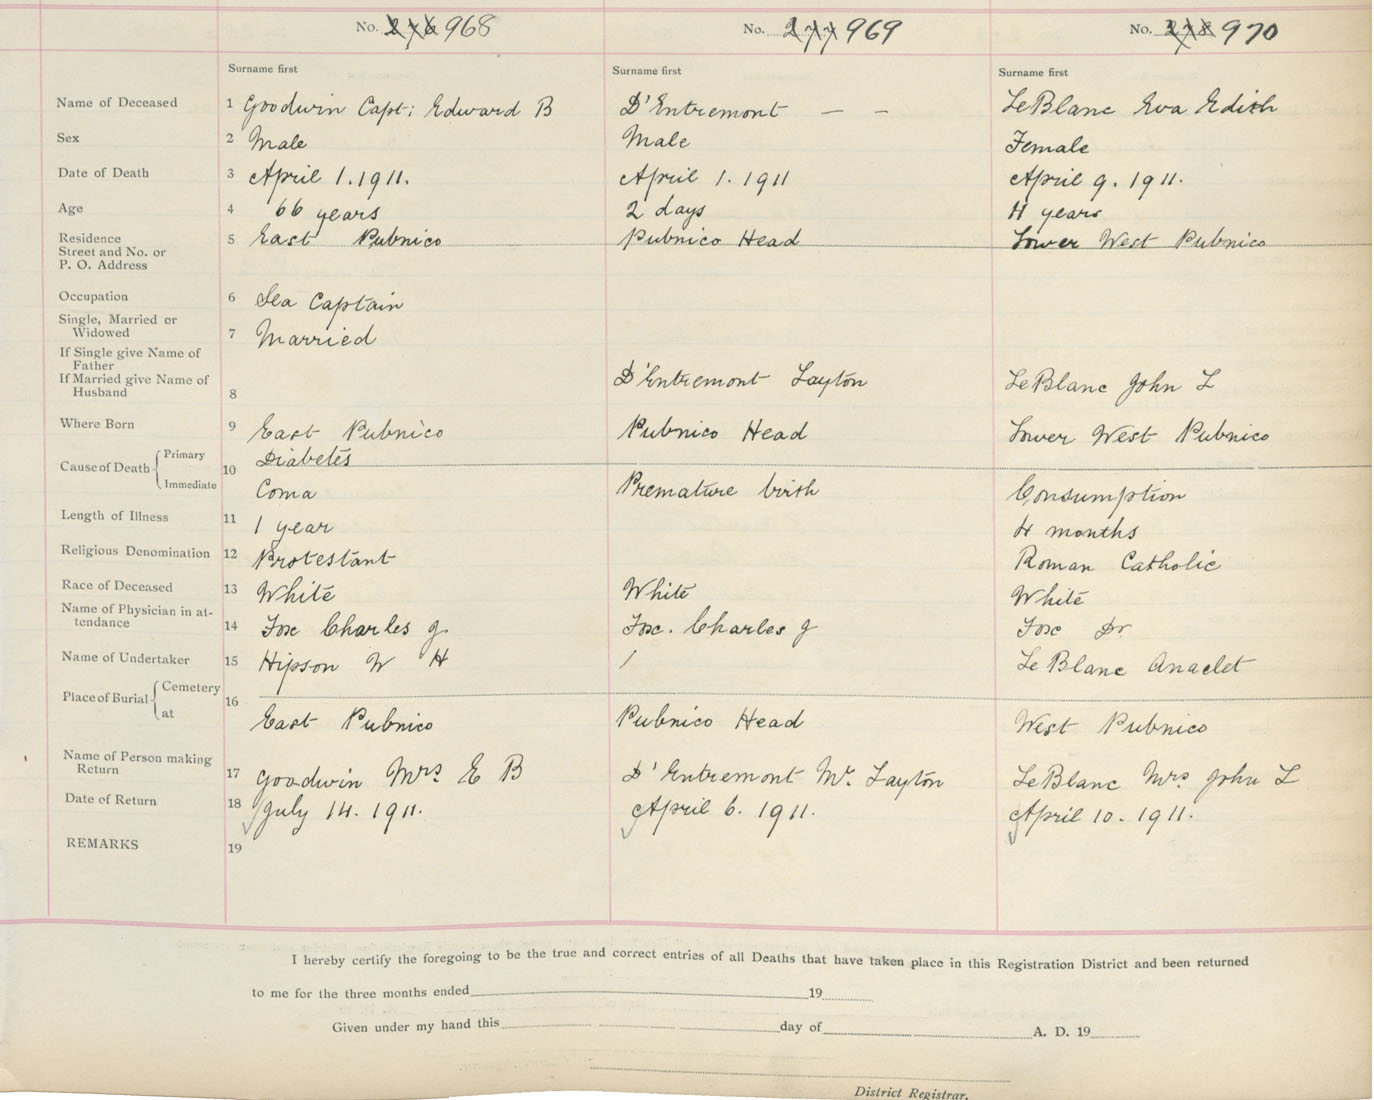 No. 276 968 No. 277 969 No. 278 970
Surname first Surname first Surname first
Name of Deceased 1 Goodwin Capt: Edward B D'Entremont — — LeBlanc Eva Edith
Sex 2 Male Male Female
Date of Death 3 April 1. 1911. April 1. 1911 April 9. 1911.
Age 4 66 years 2 days 4 years
Residence 5 East Pubnico Pubnico Head Lower West Pubnico
Street and No. or
P. O. Address
Occupation 6 Sea Captain
Single, Married or
Widowed 7 Married
If Single give Name of
Father
If Married give Name of D'Entremont Layton LeBlanc John L
Husband 8
Where Born 9 East Pubnico Pubnico Head Lower West Pubnico
Primary Diabetes
Cause of Death 10
Immediate Coma Premature birth Consumption
Length of Illness 11 1 year 4 months
Religious Denomination 12 Protestant Roman Catholic
Race of Deceased 13 White White White
Name of Physician in at-
tendance 14 Fox Charles J. Fox. Charles J Fox Dr
Name of Undertaker 15 Hipson W H / LeBlanc Anaclet
Cemetery
Place of Burial 16
at East Pubnico Pubnico Head West Pubnico
Name of Person making
Return 17 Goodwin Mrs E B D'Entremont Mr. Layton LeBlanc Mrs. John L
Date of Return 18 July 14. 1911. April 6. 1911. April 10. 1911.
REMARKS 19
I hereby certify the foregoing to be the true and correct entries of all Deaths that have taken place in this Registration District and been returned
to me for the three months ended 19
Given under my hand this day of A. D. 19
District Registrar.